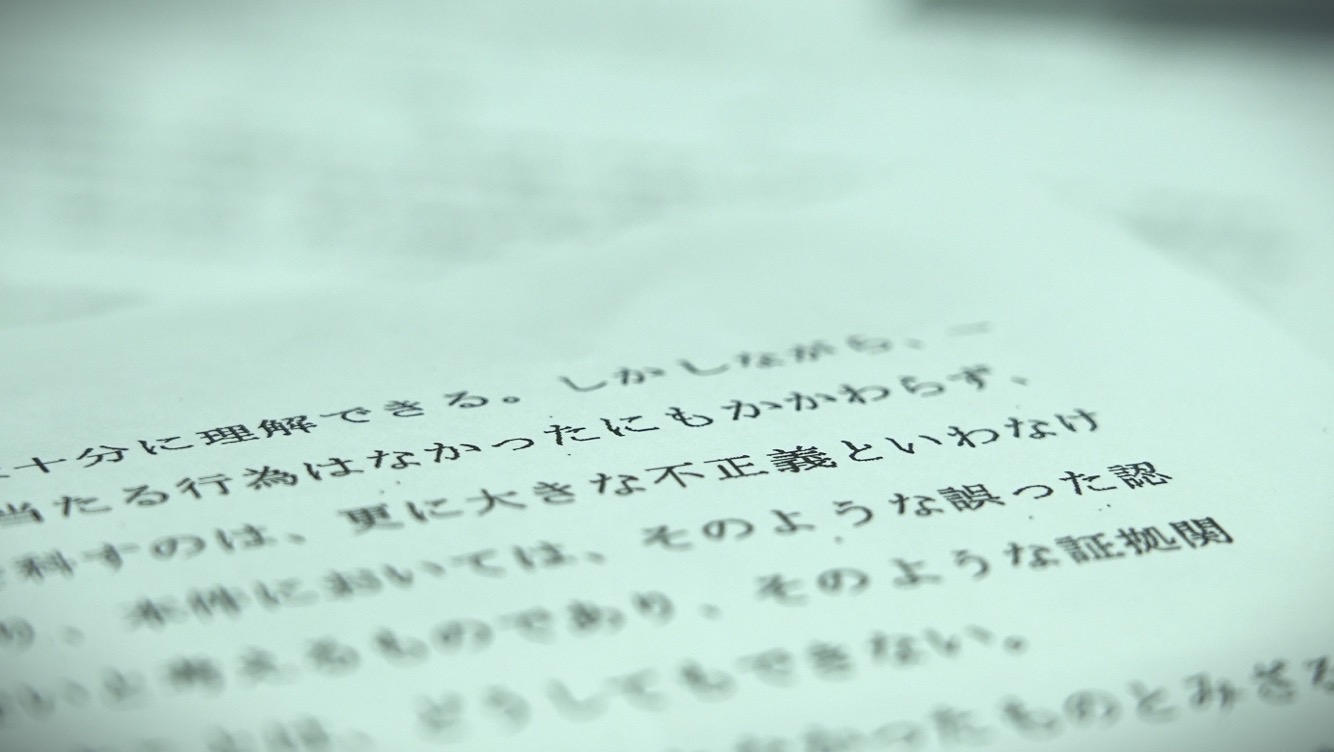 十分に理解できる。しかしながら、二
当たる行為はなかったにもかかわらず、
科すのは、更に大きな不正義といわなけ
り、本件においては、そのような誤った認
いと考えるものであり、そのような証拠関
どうしてもできない。
なかったものとみざる